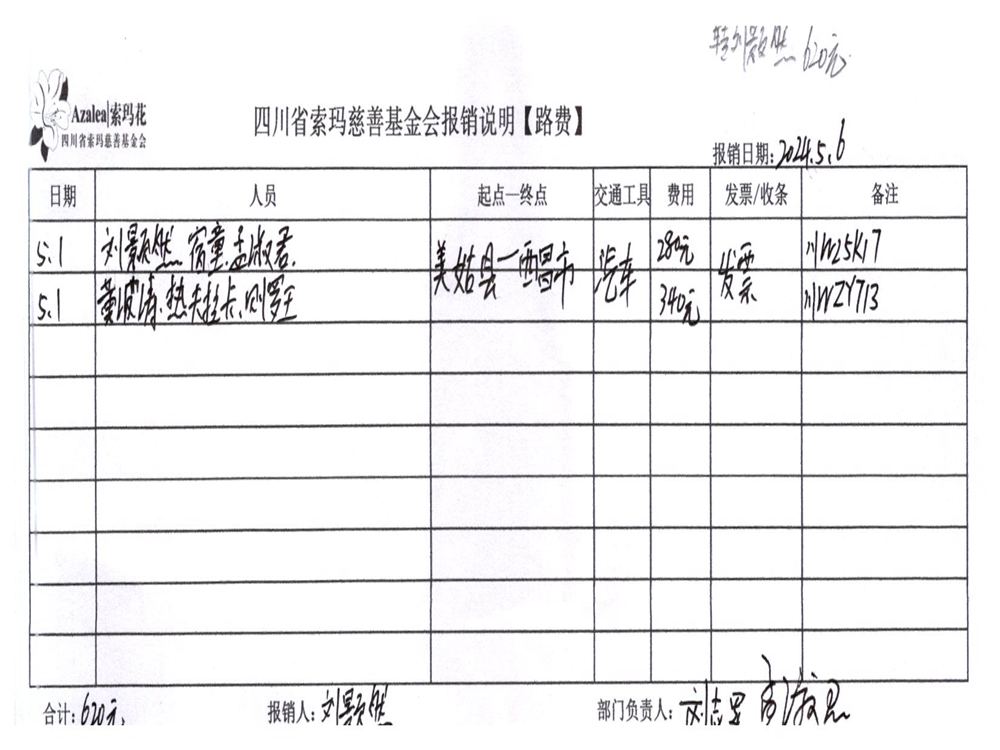 转刘颢然 620元
Azalea|索玛花
四川省索玛慈善基金会
四川省索玛慈善基金会报销说明【路费】
报销日期:2024.5.6
日期 人员 起点—终点 交通工具 费用 发票/收条 备注
5.1 刘颢然 宿童 孟淑君. 美姑县—西昌市 汽车 280元 发票 川W25K17
5.1 黄波涛.热夫拉卡. 340元 川WZY713
合计:620元. 报销人:刘颢然 部门负责人: